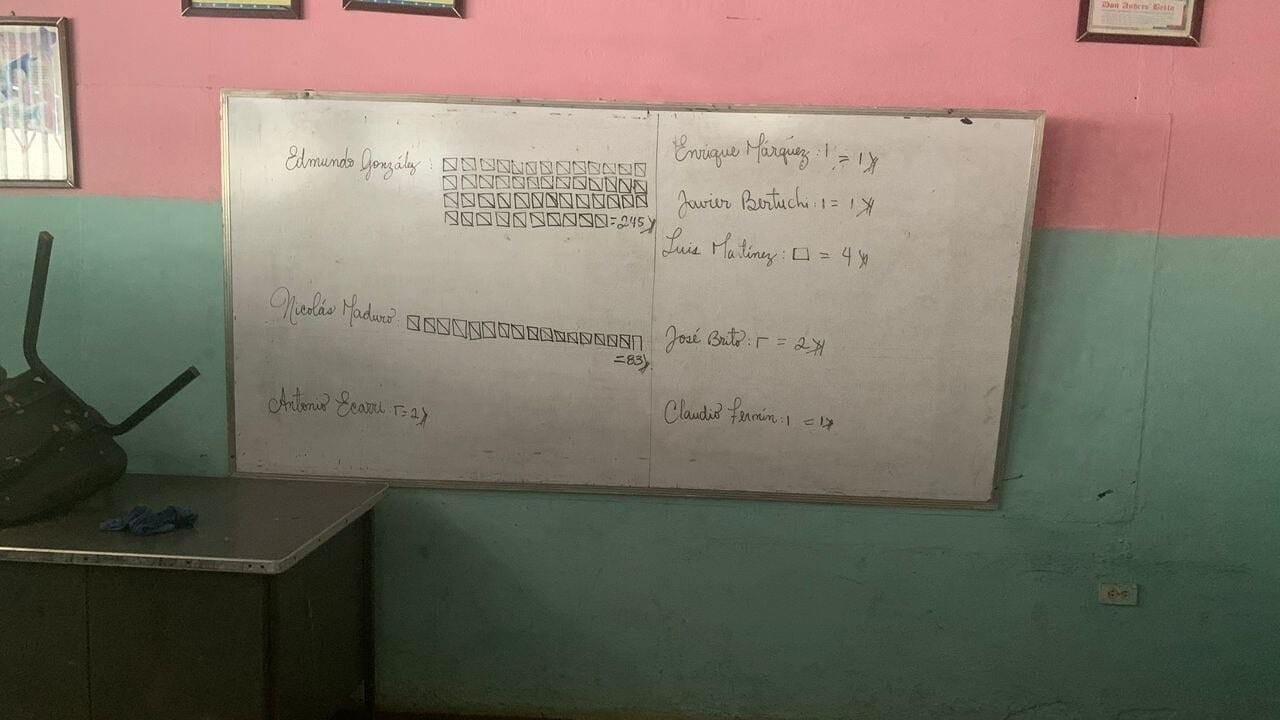 Don Andrés Bello
Edmundo González :
= 245
Nicolás Maduro:
= 83
Antonio Ecarri: = 2
Enrique Márquez: 1 = 1
Javier Bertuchi: 1 = 1
Luis Matínez: □ = 4
José Brito: = 2
Claudio Fermín: 1 = 1